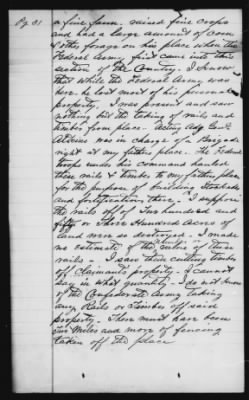 Pg. 31
a fine farm. raised fine crops
and had a large amount of corn
& other forage on his place when the
Federal Army first came into this
section of the Country. I know
that while the Federal Army was
here he lost most of his personal
property. I was present and saw
nothing but the taking of rails and
timber from place. Acting Adg. Genl.
Atkins was in charge of a Brigade
right at my fathers place. The Federal
troops under his command hauled
these rails & timber to my fathers place
for the purpose of building Stockade
and fortifications there. I suppose
the rails off of Two hundred and
fifty or Three Hundred Acres of
land were so destroyed. I made
no estimate of the value of these
rails. I saw them cutting timber
off Claimants property. I cannot
say in what quantity. I do not know
of the Confederate Army taking
any Rails or timber off said
property. There must have been
Miles and more of fencing
taken off the place